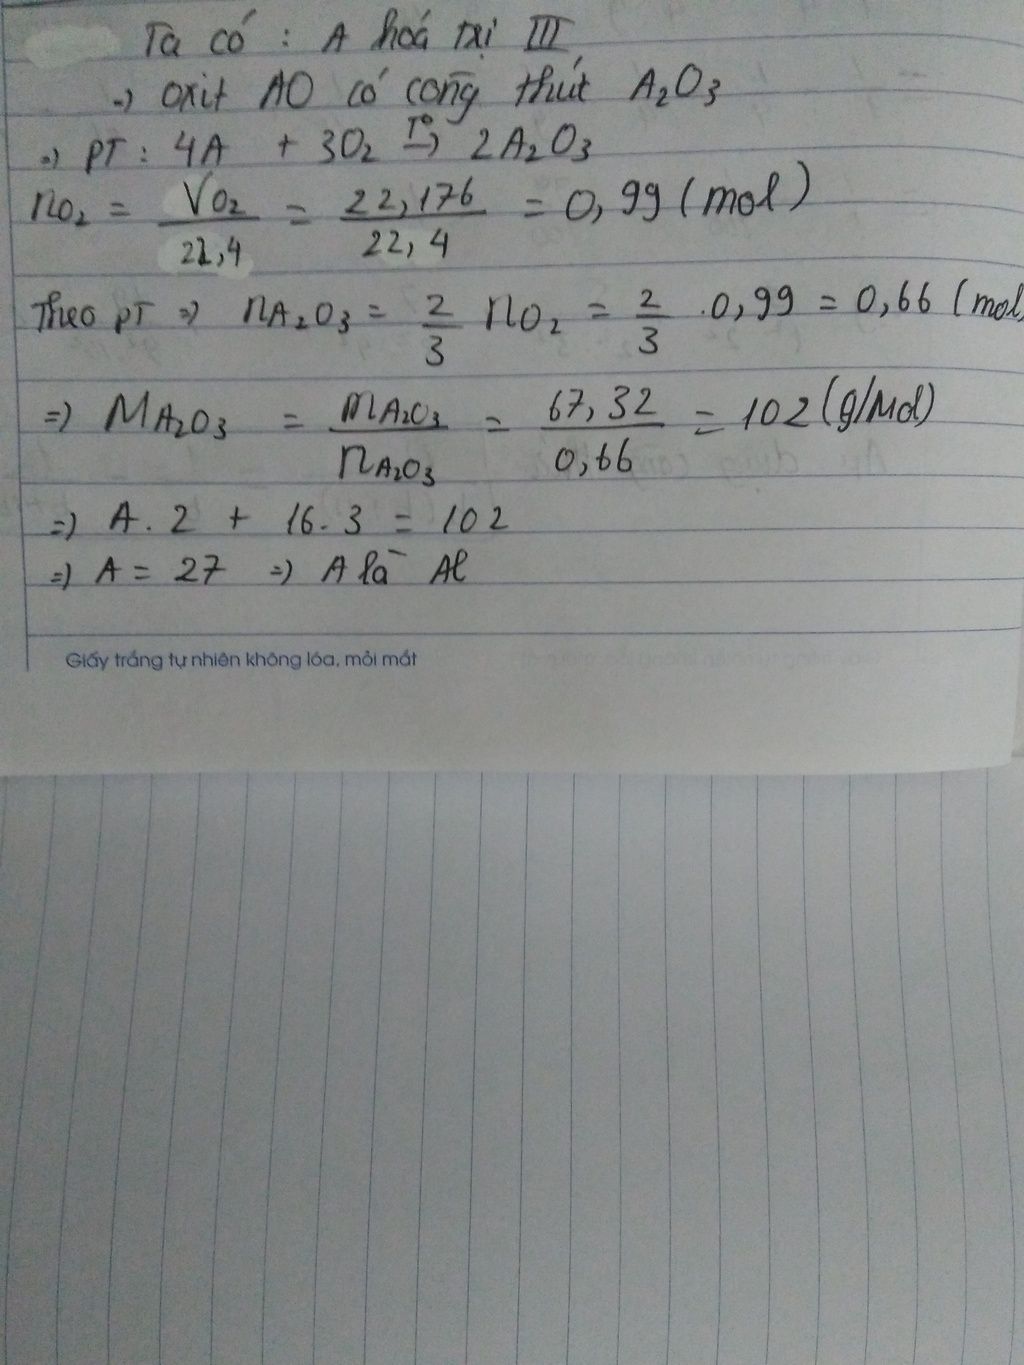 Ta có : A hoá trị III
=> oxit AO có công thức A2O3
=> PT : 4A + 3O2 T°→ 2A2O3
nO2 = VO2/22,4 = 22,176/22,4 = 0,99 (mol)
Theo PT => nA2O3 = 2/3 nO2 = 2/3 . 0,99 = 0,66 (mol)
=> MA2O3 = mA2O3/nA2O3 = 67,32/0,66 = 102 (g/Mol)
=> A . 2 + 16 . 3 = 102
=> A = 27 => A là Al
Giấy trắng tự nhiên không lóa, mỏi mắt